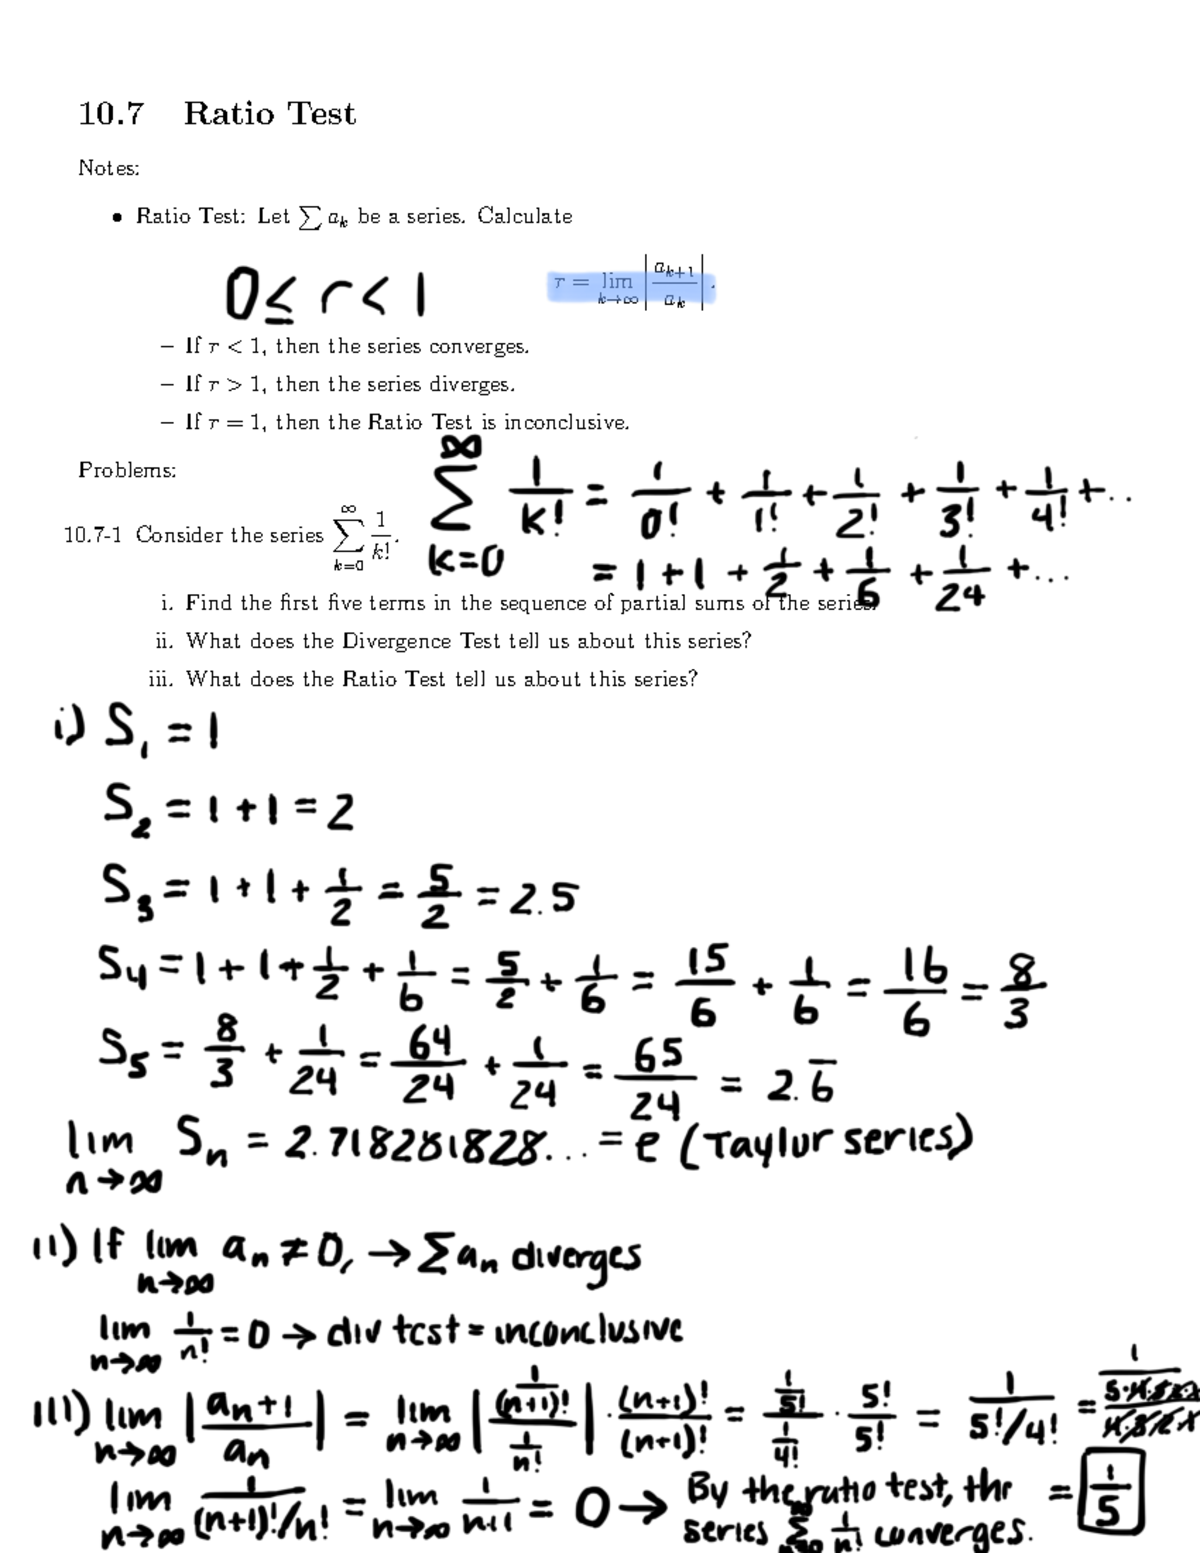 10.7 Ratio Test
Notes:
• Ratio Test: Let ∑ a_k be a series. Calculate
0 ≤ r < 1
r = lim_{k→∞} |a_{k+1}/a_k|.
– If r < 1, then the series converges.
– If r > 1, then the series diverges.
– If r = 1, then the Ratio Test is inconclusive.
Problems:
∑_{k=0}^{∞} 1/k! = 1/0! + 1/1! + 1/2! + 1/3! + 1/4! + ..
10.7-1 Consider the series ∑_{k=0}^{∞} 1/k!.
= 1 + 1 + 1/2 + 1/6 + 1/24 + ...
i. Find the first five terms in the sequence of partial sums of the series.
ii. What does the Divergence Test tell us about this series?
iii. What does the Ratio Test tell us about this series?
i) S_1 = 1
S_2 = 1 + 1 = 2
S_3 = 1 + 1 + 1/2 = 5/2 = 2.5
S_4 = 1 + 1 + 1/2 + 1/6 = 5/2 + 1/6 = 15/6 + 1/6 = 16/6 = 8/3
S_5 = 8/3 + 1/24 = 64/24 + 1/24 = 65/24 = 2.6̅
lim_{n→∞} S_n = 2.718281828... = e (Taylor series)
ii) If lim_{n→∞} a_n ≠ 0, → ∑ a_n diverges
lim_{n→∞} 1/n! = 0 → div test = inconclusive
iii) lim_{n→∞} |a_{n+1}/a_n| = lim_{n→∞} |(1/(n+1)!)/(1/n!)| · (n+1)!/(n+1)! = (1/5!)/(1/4!) · 5!/5! = 1/(5!/4!) = 1/(5·4·3·2·1/4·3·2·1)
lim_{n→∞} 1/((n+1)!/n!) = lim_{n→∞} 1/(n+1) = 0 → By the ratio test, the = 1/5
series ∑ 1/n! converges.